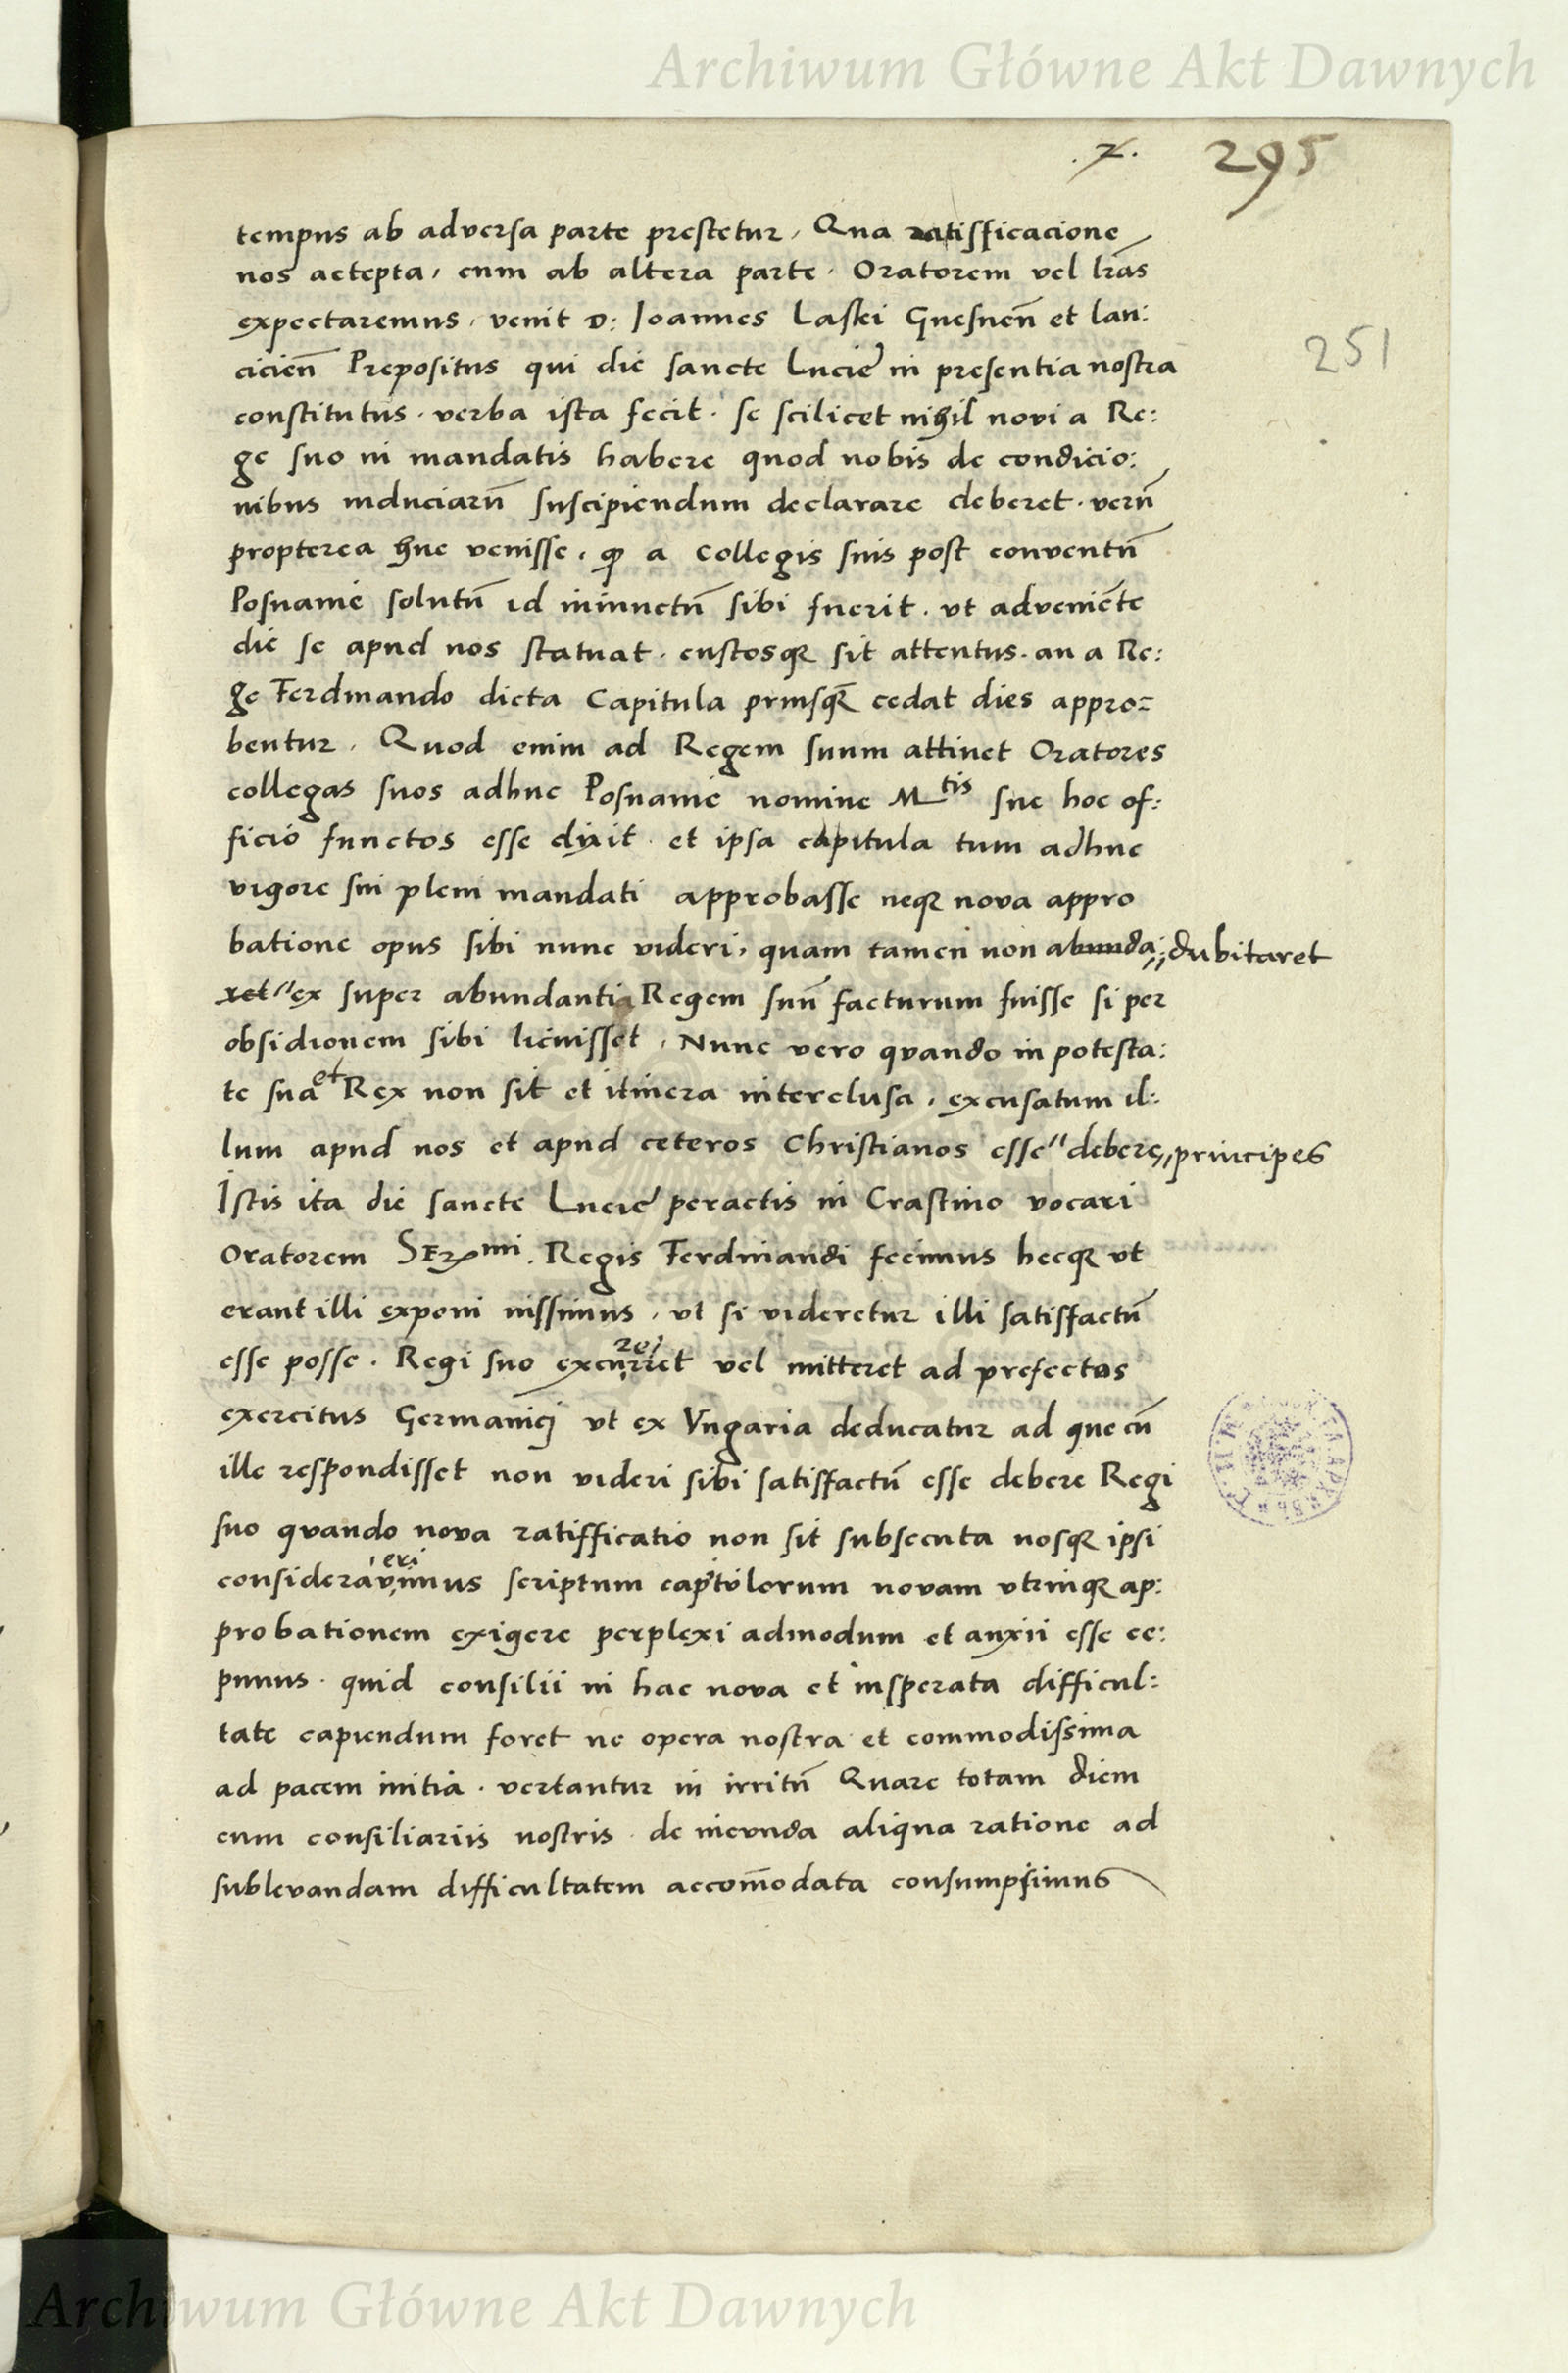 Archiwum Główne Akt Dawnych
.7. 295
tempus ab adversa parte prestetur, Qua ratifficacione
nos accepta, cum ab altera parte. Oratorem vel lr̃as
expectaremus, venit D: Joannes Laski Gnesneñ et lan:
cicieñ Prepositus qui die sancte Lucie in presentia nostra
251
constitutus. verba ista fecit. se scilicet nihil novi a Re:
ge suo in mandatis habere quod nobis de condicio:
nibus induciarũ suscipiendum declarare deberet. verũ
propterea huc venisse, ꝙ a Collegis suis post conventũ
Posnanie solutũ id iniunctũ sibi fuerit. ut advenie͂te
die se apud nos statuat. custosqꝫ sit attentus. an a Re:
ge Ferdinando dicta Capitula priusq̃ꝫ cedat dies appro=
bentur. Quod enim ad Regem suum attinet Oratores
collegas suos adhuc Posnanie nomine Mtis sue hoc of:
ficio functos esse dixit. et ipsa capitula tum adhuc
vigore sui pleni mandati approbasse neqꝫ nova appro
batione opus sibi nunc videri, quam tamen non abunda: dubitaret
ret ex super abundantia Regem suũ facturum fuisse si per
obsidionem sibi licuisset, Nunc vero quando in potesta:
te sua et Rex non sit et itinera interclusa, excusatum il:
lum apud nos et apud ceteros Christianos esse" debere,, principes
Istis ita die sancte Lucie peractis in Crastino vocari
Oratorem SERmi. Regis Ferdinandi fecimus hecqꝫ ut
erant illi exponi iussimus, ut si videretur illi satisfactũ
esse posse. Regi suo excurret rei vel mitteret ad prefectos
exercitus Germanicj ut ex Vngaria deducatur ad que cũ
ille respondisset non videri sibi satisfactũ esse debere Regi
suo quando nova ratifficatio non sit subsecuta nosqꝫ ipsi
consideravimus eri scriptum capitulorum novam utrinqꝫ ap:
probationem exigere perplexi admodum et anxii esse ce:
pimus. quid consilii in hac nova et insperata difficul:
tate capiendum foret ne opera nostra et commodissima
ad pacem initia. vertantur in irritũ Quare totam diem
cum consiliariis nostris. de ineunda aliqua ratione ad
sublevandam difficultatem accom̃odata consumpsimus
Archiwum Główne Akt Dawnych